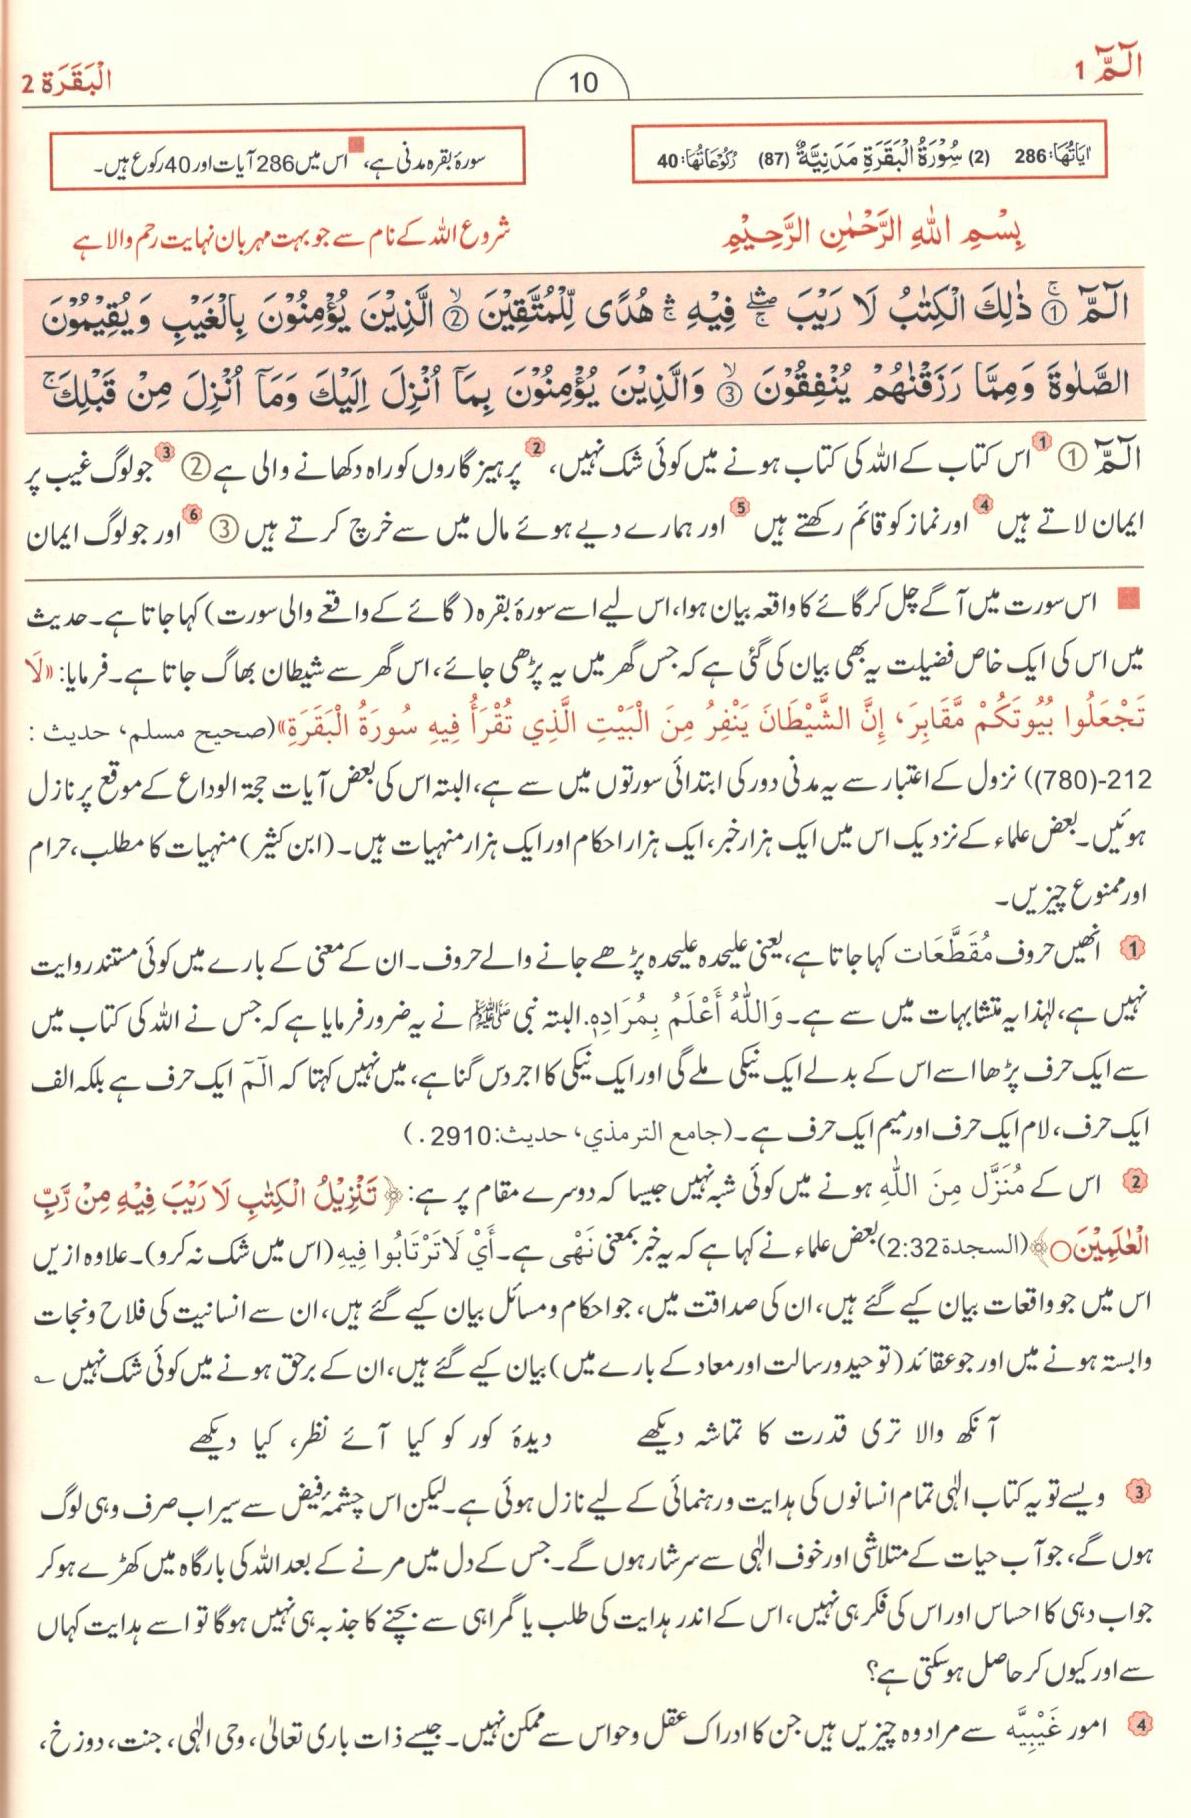 الٓمّٓ 1
10
الْبَقَرَة 2
اٰيَاتُهَا: 286 (2) سُوْرَةُ الْبَقَرَةِ مَدَنِيَّةٌ (87) رُكُوْعَاتُهَا: 40
سورۂ بقرہ مدنی ہے، اس میں 286 آیات اور 40 رکوع ہیں۔
بِسْمِ اللّٰهِ الرَّحْمٰنِ الرَّحِيْمِ
شروع اللہ کے نام سے جو بہت مہربان نہایت رحم والا ہے
الٓمّٓ ۚ① ذٰلِكَ الْكِتٰبُ لَا رَيْبَ ۛ فِيْهِ ۛ هُدًى لِّلْمُتَّقِيْنَ ۙ② الَّذِيْنَ يُؤْمِنُوْنَ بِالْغَيْبِ وَيُقِيْمُوْنَ
الصَّلٰوةَ وَمِمَّا رَزَقْنٰهُمْ يُنْفِقُوْنَ ۙ③ وَالَّذِيْنَ يُؤْمِنُوْنَ بِمَآ اُنْزِلَ اِلَيْكَ وَمَآ اُنْزِلَ مِنْ قَبْلِكَ ۚ
الٓمّٓ ① 1 اس کتاب کے اللہ کی کتاب ہونے میں کوئی شک نہیں، 2 پرہیز گاروں کو راہ دکھانے والی ہے ② 3 جو لوگ غیب پر
ایمان لاتے ہیں 4 اور نماز کو قائم رکھتے ہیں 5 اور ہمارے دیے ہوئے مال میں سے خرچ کرتے ہیں ③ 6 اور جو لوگ ایمان
■ اس سورت میں آگے چل کر گائے کا واقعہ بیان ہوا، اس لیے اسے سورۂ بقرہ (گائے کے واقعے والی سورت) کہا جاتا ہے۔ حدیث
میں اس کی ایک خاص فضیلت یہ بھی بیان کی گئی ہے کہ جس گھر میں یہ پڑھی جائے، اس گھر سے شیطان بھاگ جاتا ہے۔ فرمایا: «لَا
تَجْعَلُوا بُيُوتَكُمْ مَّقَابِرَ، إِنَّ الشَّيْطَانَ يَنْفِرُ مِنَ الْبَيْتِ الَّذِي تُقْرَأُ فِيهِ سُورَةُ الْبَقَرَةِ» (صحيح مسلم، حديث :
212-(780)) نزول کے اعتبار سے یہ مدنی دور کی ابتدائی سورتوں میں سے ہے، البتہ اس کی بعض آیات حجۃ الوداع کے موقع پر نازل
ہوئیں۔ بعض علماء کے نزدیک اس میں ایک ہزار خبر، ایک ہزار احکام اور ایک ہزار منہیات ہیں۔ (ابن کثیر) منہیات کا مطلب، حرام
اور ممنوع چیزیں۔
1 انھیں حروف مُقَطَّعَات کہا جاتا ہے، یعنی علیحدہ علیحدہ پڑھے جانے والے حروف۔ ان کے معنی کے بارے میں کوئی مستند روایت
نہیں ہے، لہٰذا یہ متشابہات میں سے ہے۔ وَاللّٰهُ أَعْلَمُ بِمُرَادِهٖ. البتہ نبی ﷺ نے یہ ضرور فرمایا ہے کہ جس نے اللہ کی کتاب میں
سے ایک حرف پڑھا اسے اس کے بدلے ایک نیکی ملے گی اور ایک نیکی کا اجر دس گنا ہے، میں نہیں کہتا کہ الٓمٓ ایک حرف ہے بلکہ الف
ایک حرف، لام ایک حرف اور میم ایک حرف ہے۔ (جامع الترمذي، حديث: 2910.)
2 اس کے مُنَزَّل مِنَ اللّٰهِ ہونے میں کوئی شبہ نہیں جیسا کہ دوسرے مقام پر ہے: ﴿تَنْزِيْلُ الْكِتٰبِ لَا رَيْبَ فِيْهِ مِنْ رَّبِّ
الْعٰلَمِيْنَ○﴾ (السجدة 2:32) بعض علماء نے کہا ہے کہ یہ خبر بمعنی نَهْی ہے۔ أَيْ لَا تَرْتَابُوا فِيهِ (اس میں شک نہ کرو)۔ علاوہ ازیں
اس میں جو واقعات بیان کیے گئے ہیں، ان کی صداقت میں، جو احکام و مسائل بیان کیے گئے ہیں، ان سے انسانیت کی فلاح و نجات
وابستہ ہونے میں اور جو عقائد (توحید و رسالت اور معاد کے بارے میں) بیان کیے گئے ہیں، ان کے برحق ہونے میں کوئی شک نہیں ؎
آنکھ والا تری قدرت کا تماشہ دیکھے دیدۂ کور کو کیا آئے نظر، کیا دیکھے
3 ویسے تو یہ کتاب الٰہی تمام انسانوں کی ہدایت و رہنمائی کے لیے نازل ہوئی ہے۔ لیکن اس چشمۂ فیض سے سیراب صرف وہی لوگ
ہوں گے، جو آب حیات کے متلاشی اور خوف الٰہی سے سرشار ہوں گے۔ جس کے دل میں مرنے کے بعد اللہ کی بارگاہ میں کھڑے ہو کر
جواب دہی کا احساس اور اس کی فکر ہی نہیں، اس کے اندر ہدایت کی طلب یا گمراہی سے بچنے کا جذبہ ہی نہیں ہوگا تو اسے ہدایت کہاں
سے اور کیوں کر حاصل ہو سکتی ہے؟
4 امور غَیْبِیَّه سے مراد وہ چیزیں ہیں جن کا ادراک عقل و حواس سے ممکن نہیں۔ جیسے ذات باری تعالیٰ، وحی الٰہی، جنت، دوزخ،